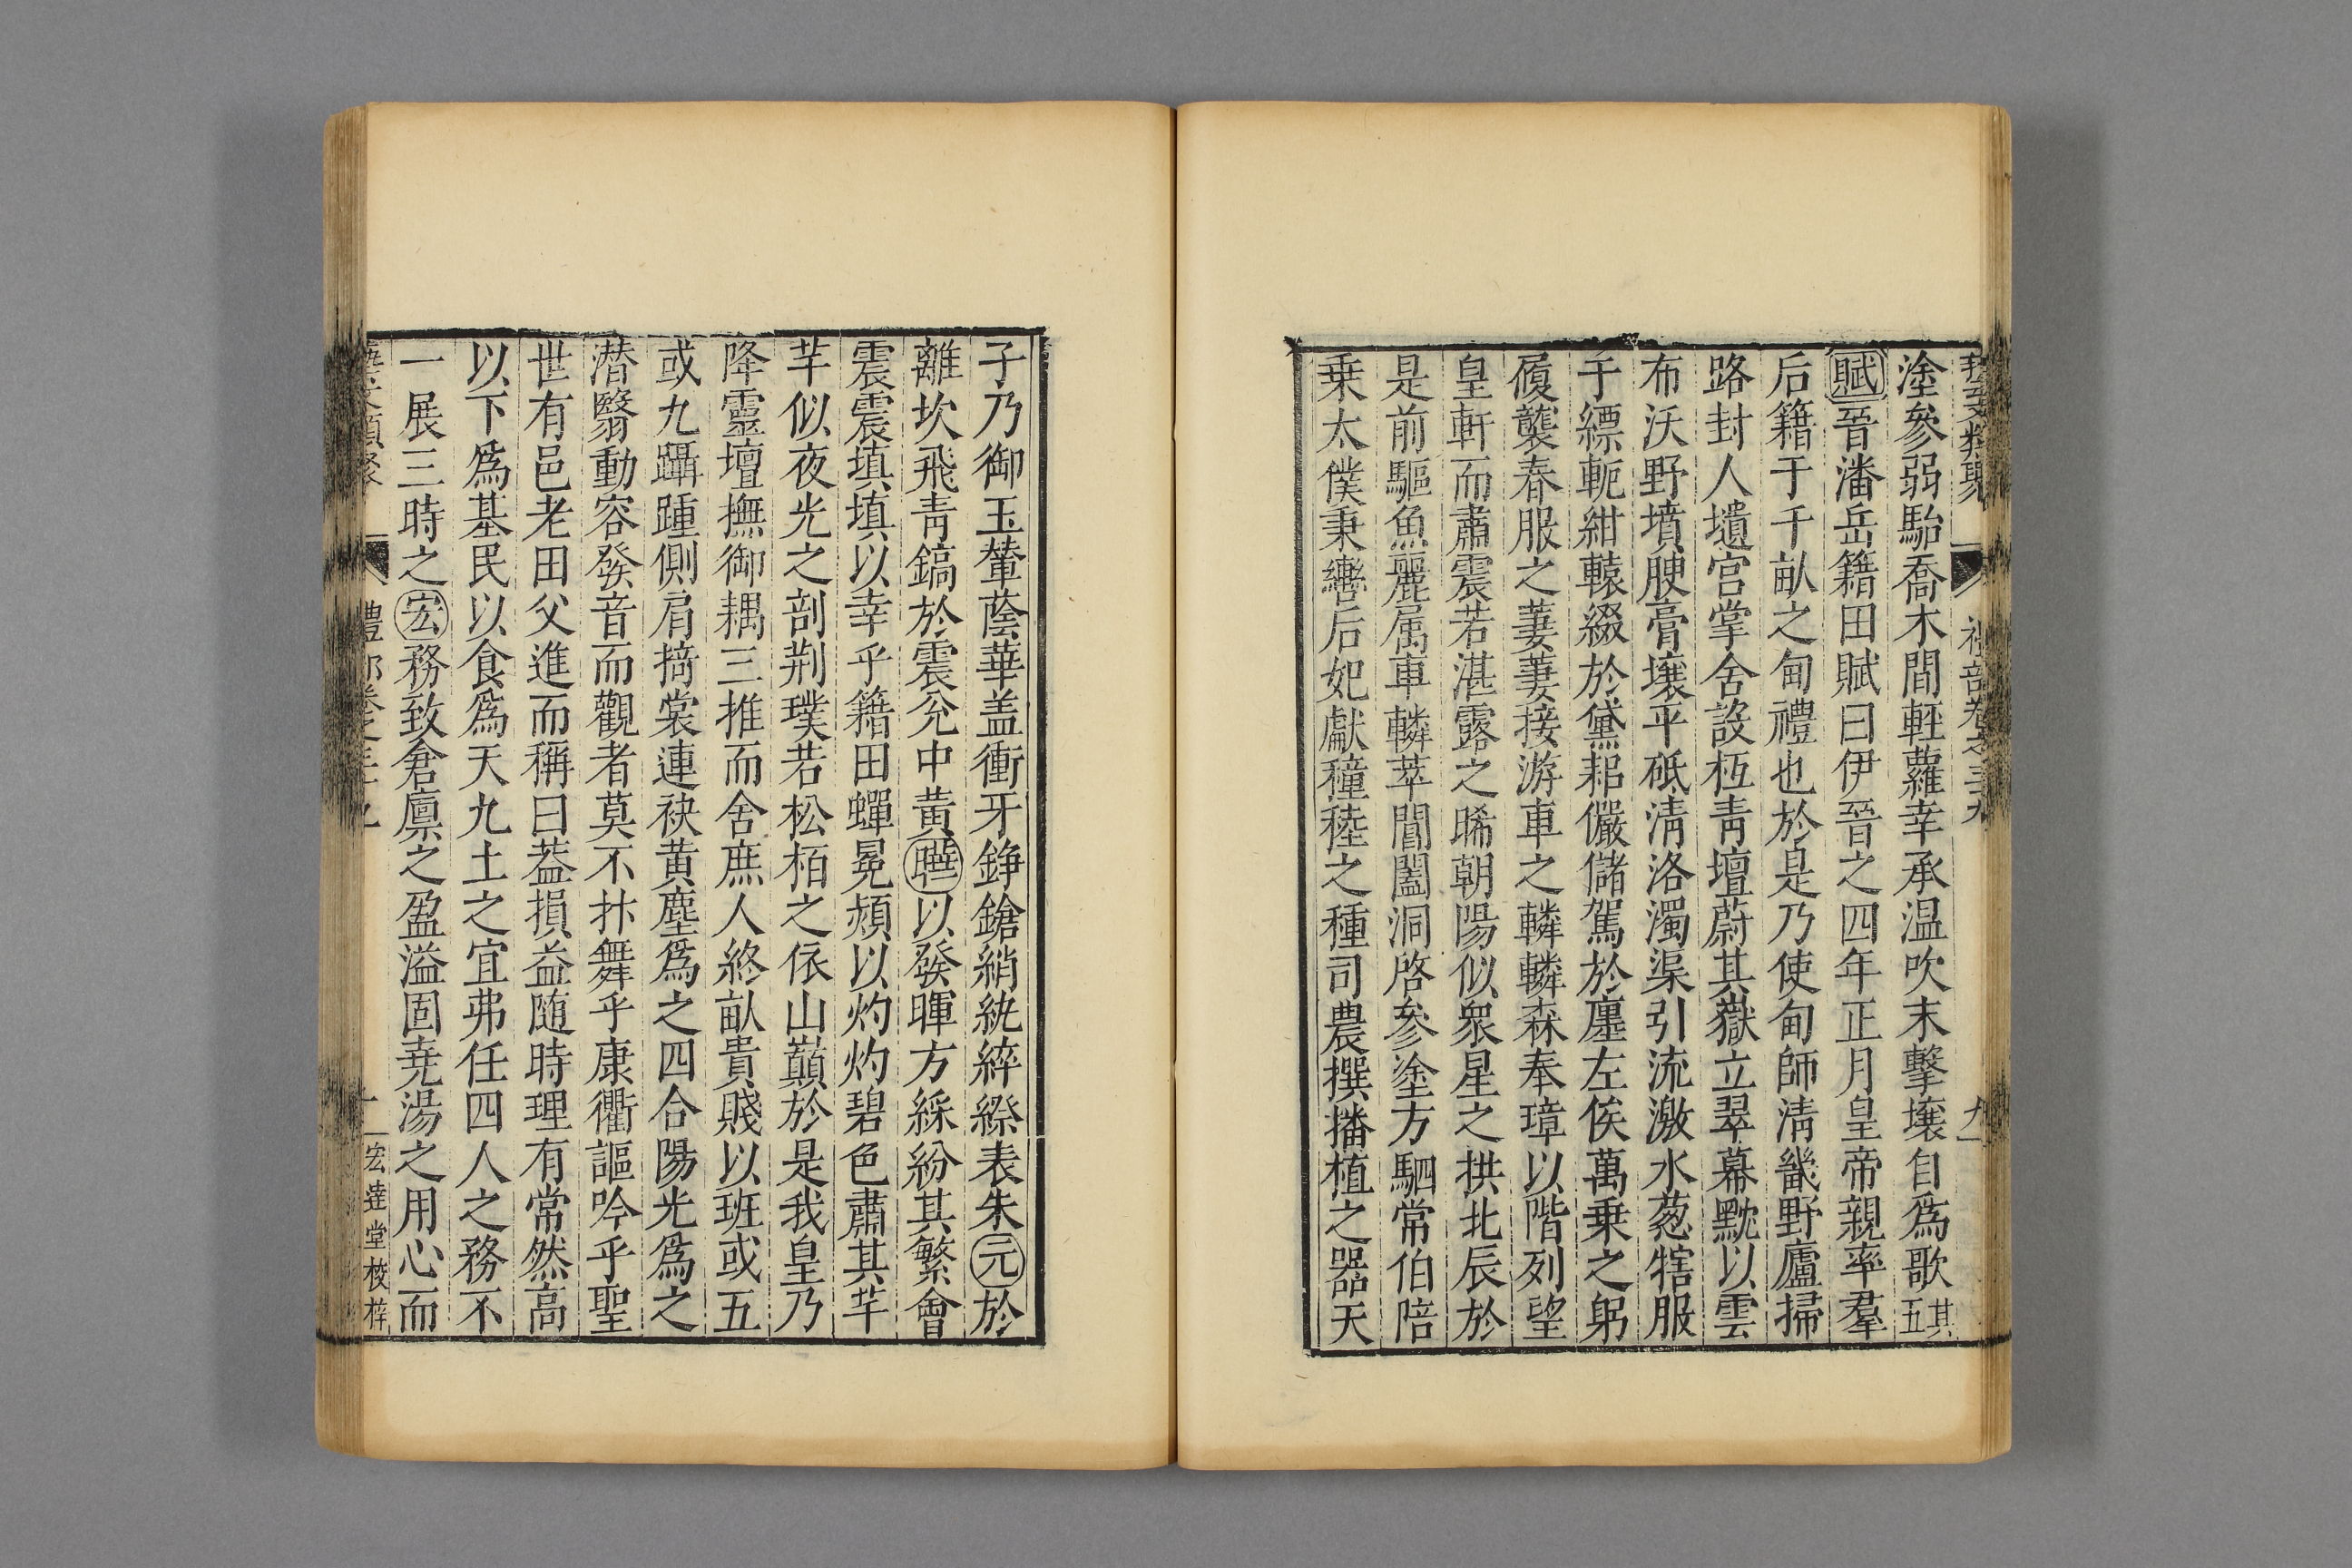 藝文類聚 禮部卷之三十九 九
塗參弱駘喬木間輕蘿幸承温吹末擊壤自爲歌其五
賦晉潘岳籍田賦曰伊晉之四年正月皇帝親率羣
后籍于千畝之甸禮也於是乃使甸師清畿野廬掃
路封人壝宮掌舍設枑青壇蔚其嶽立翠幕黙以雲
布沃野墳腴膏壤平砥清洛濁渠引流激水葱犗服
于縹軛紺轅綴於黛耜儼儲駕於廛左俟萬乗之躬
履襲春服之萋萋接游車之轔轔森奉璋以階列望
皇軒而肅震若湛露之晞朝陽似衆星之拱北辰於
是前驅魚麗属車轔萃閶闔洞啓參塗方駟常伯陪
乗太僕秉轡后妃獻穜稑之種司農撰播植之器天
子乃御玉輦蔭華盖衝牙錚鎗綃紈綷縩表朱元於
離坎飛青鎬於震兊中黄曄以發暉方綵紛其繁會
震震填填以幸乎籍田蟬冕熲以灼灼碧色肅其芊
芊似夜光之剖荆璞若松栢之依山巔於是我皇乃
降靈壇撫御耦三推而舍庶人終畝貴賤以班或五
或九躡踵側肩掎裳連袂黄塵爲之四合陽光爲之
潜翳動容發音而觀者莫不抃舞乎康衢謳吟乎聖
世有邑老田父進而稱曰葢損益随時理有常然高
以下爲基民以食爲天九土之宜弗任四人之務不
一展三時之宏務致倉廪之盈溢固尭湯之用心而
類聚 禮部 十 宏達堂校梓